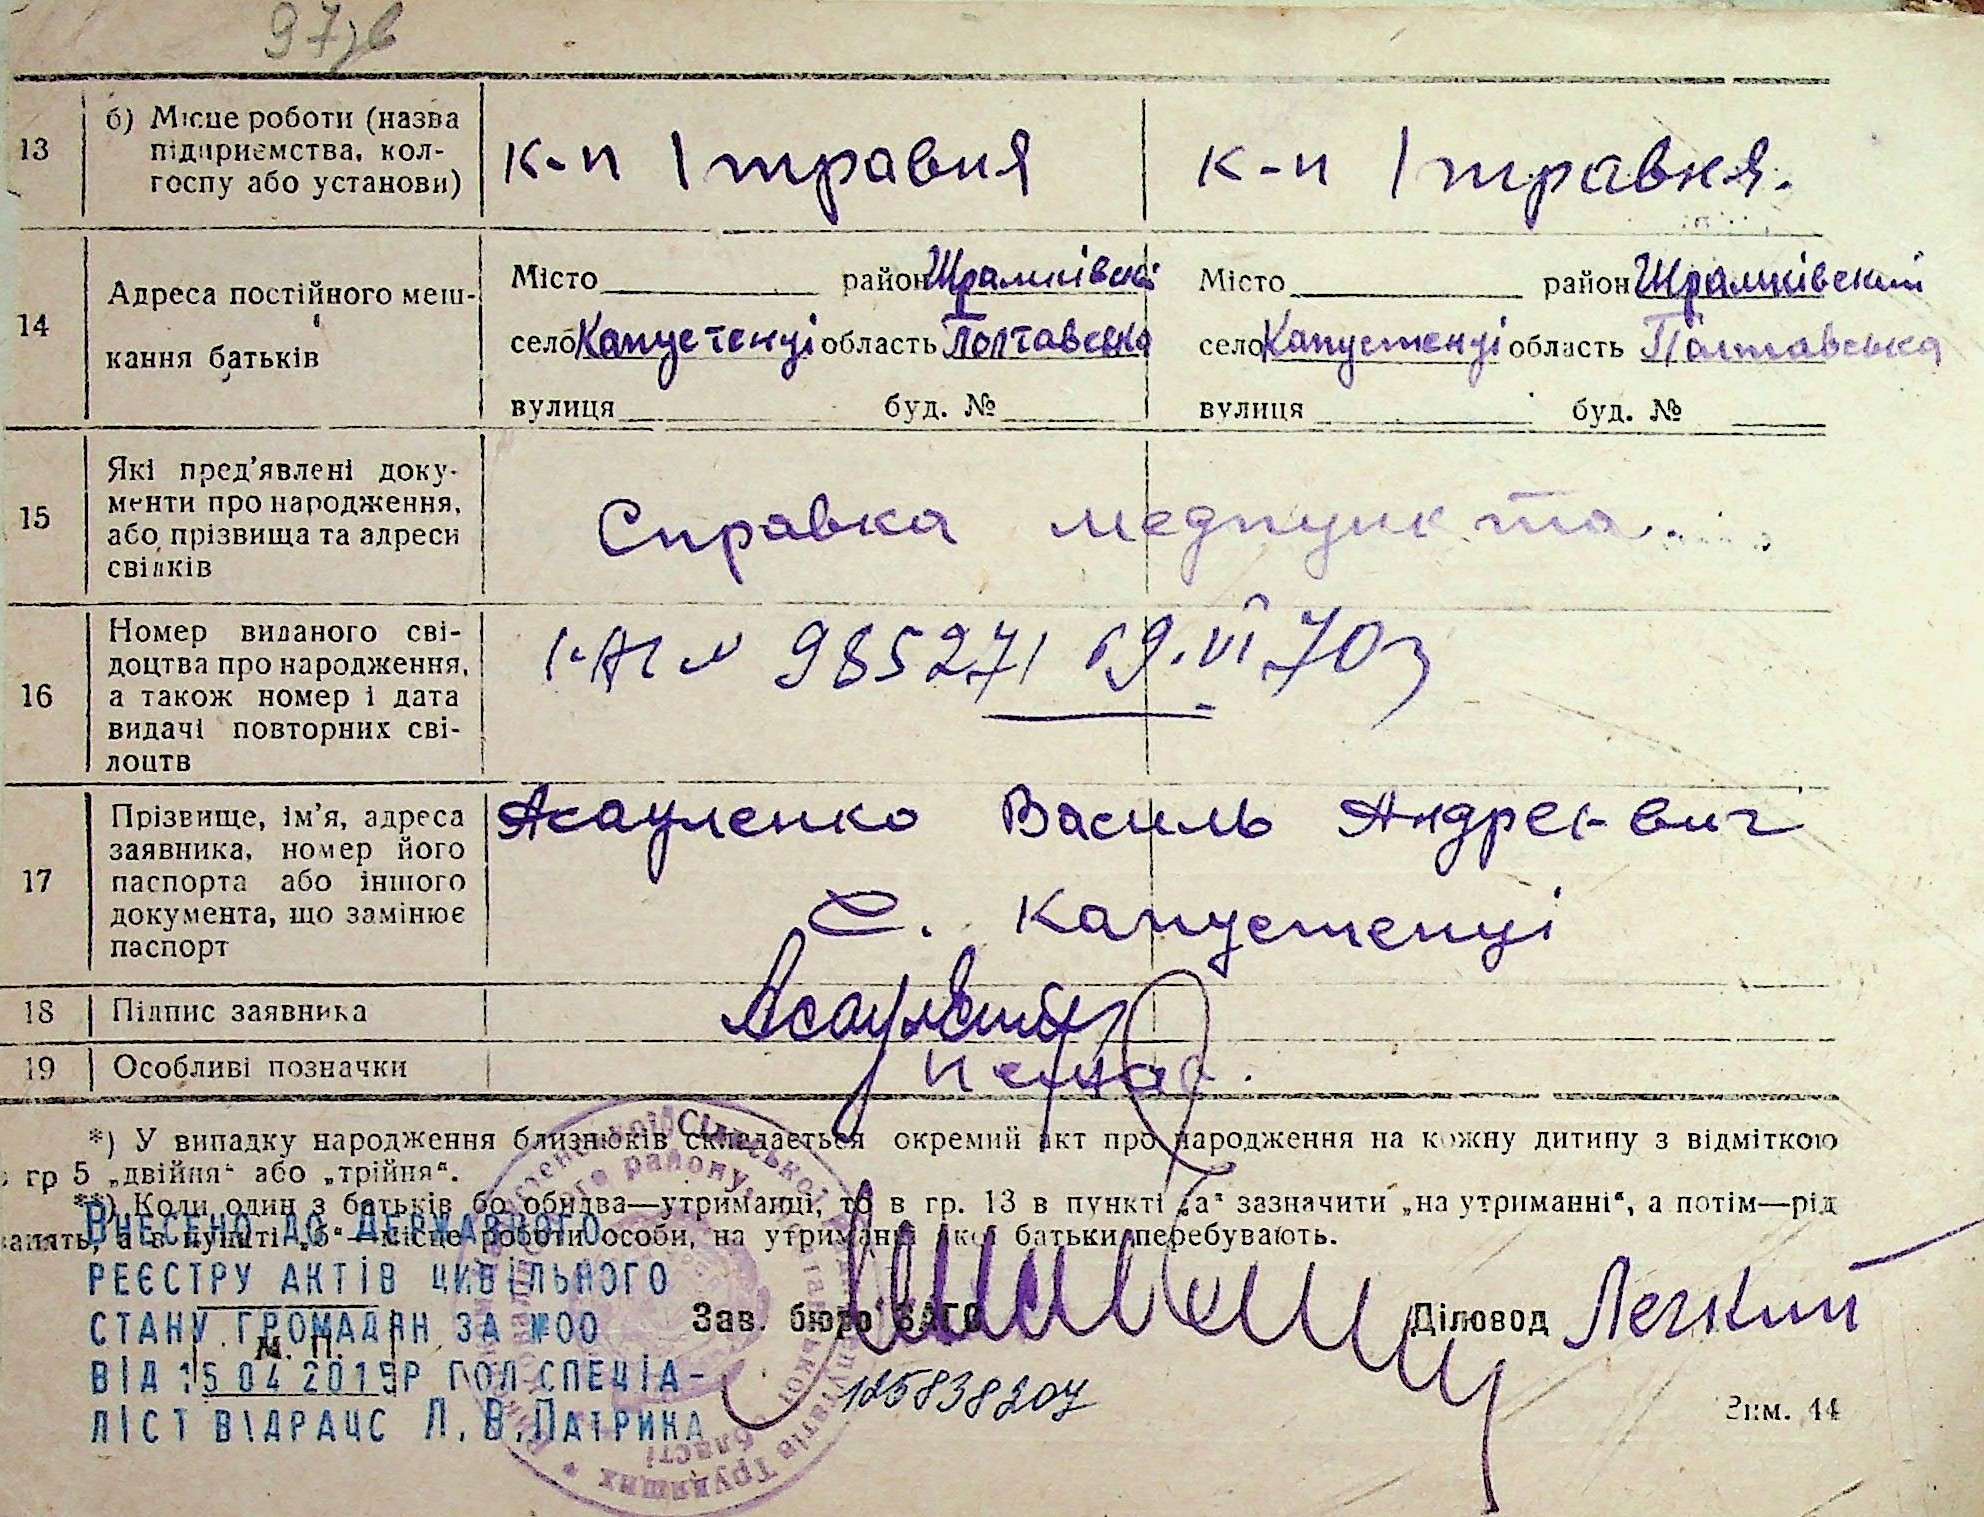 97зв
13
б) Місце роботи (назва
підприємства, кол-
госпу або установи)
к-п 1 травня
к-п 1 травня.
14
Адреса постійного меш-
кання батьків
Місто район Шрамківський
село Капустенці область Полтавська
вулиця буд. №
Місто район Шрамківський
село Капустенці область Полтавська
вулиця буд. №
15
Які пред'явлені доку-
менти про народження,
або прізвища та адреси
свідків
Справка медпункта
16
Номер виданого сві-
доцтва про народження,
а також номер і дата
видачі повторних сві-
доцтв
№ 985271 VI 70
17
Прізвище, ім'я, адреса
заявника, номер його
паспорта або іншого
документа, що замінює
паспорт
Асауленко Василь Андреевич
с. Капустенці
18
Підпис заявника
19
Особливі позначки
*) У випадку народження близнюків складається окремий акт про народження на кожну дитину з відміткою
гр 5 „двійня“ або „трійня“.
**) Коли один з батьків бо обидва—утриманці, то в гр. 13 в пункті „а“ зазначити „на утриманні“, а потім—рід
занять, а в пункті „б“—місце роботи особи, на утриманні якої батьки перебувають.
Внесено до Державного
реєстру актів цивільного
стану громадян за №00
від 15 04 2015р гол.спеціа-
ліст відрацс Л.В.Патрика
М. П.
Зав. бюро ЗАГС
Діловод Легкий
125838207
Зам. 44